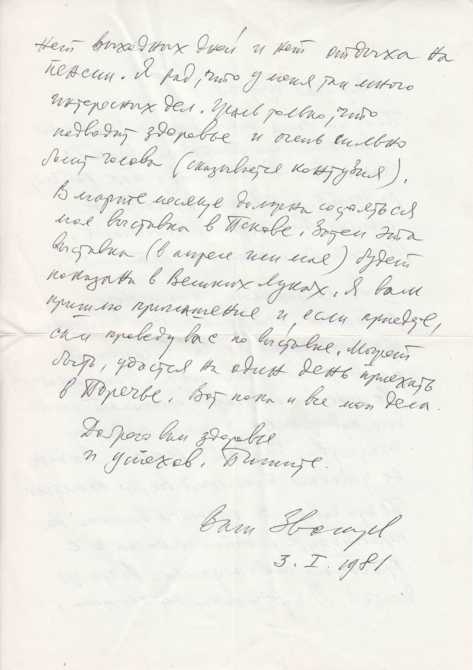 нет выходных дней и нет отдыха на
пенсии. Я рад, что у меня так много
интересных дел. Жаль только, что
подводит здоровье и очень сильно
болит голова (сказывается контузия).
В марте месяце должна состояться
моя выставка в Пскове. Затем эта
выставка (в апреле или мае) будет
показана в Великих Луках. Я вам
пришлю приглашение и если приедете,
сам проведу вас по выставке. Может
быть, удастся на один день приехать
в Поречье. Вот пока и все мои дела.
Доброго вам здоровья
и успехов. Пишите.
Ваш
3. I. 1981